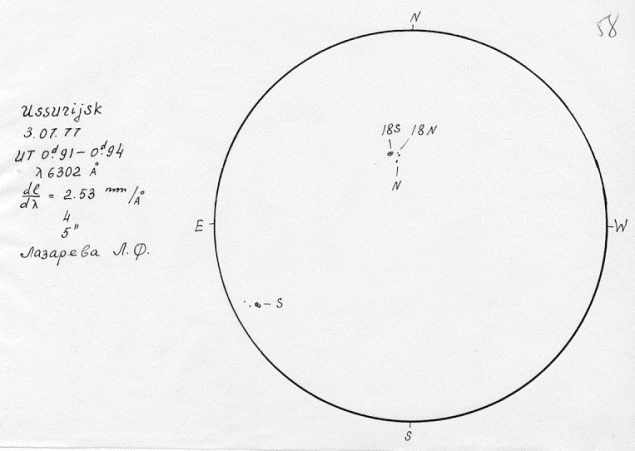 N
58
Ussurijsk
3.07.77
UT 0ᵈ.91 – 0ᵈ.94
λ 6302 Å
dl/dλ = 2.53 mm/Å
4
5"
Лазарева Л.Ф.
18S 18N
N
E
W
S
S